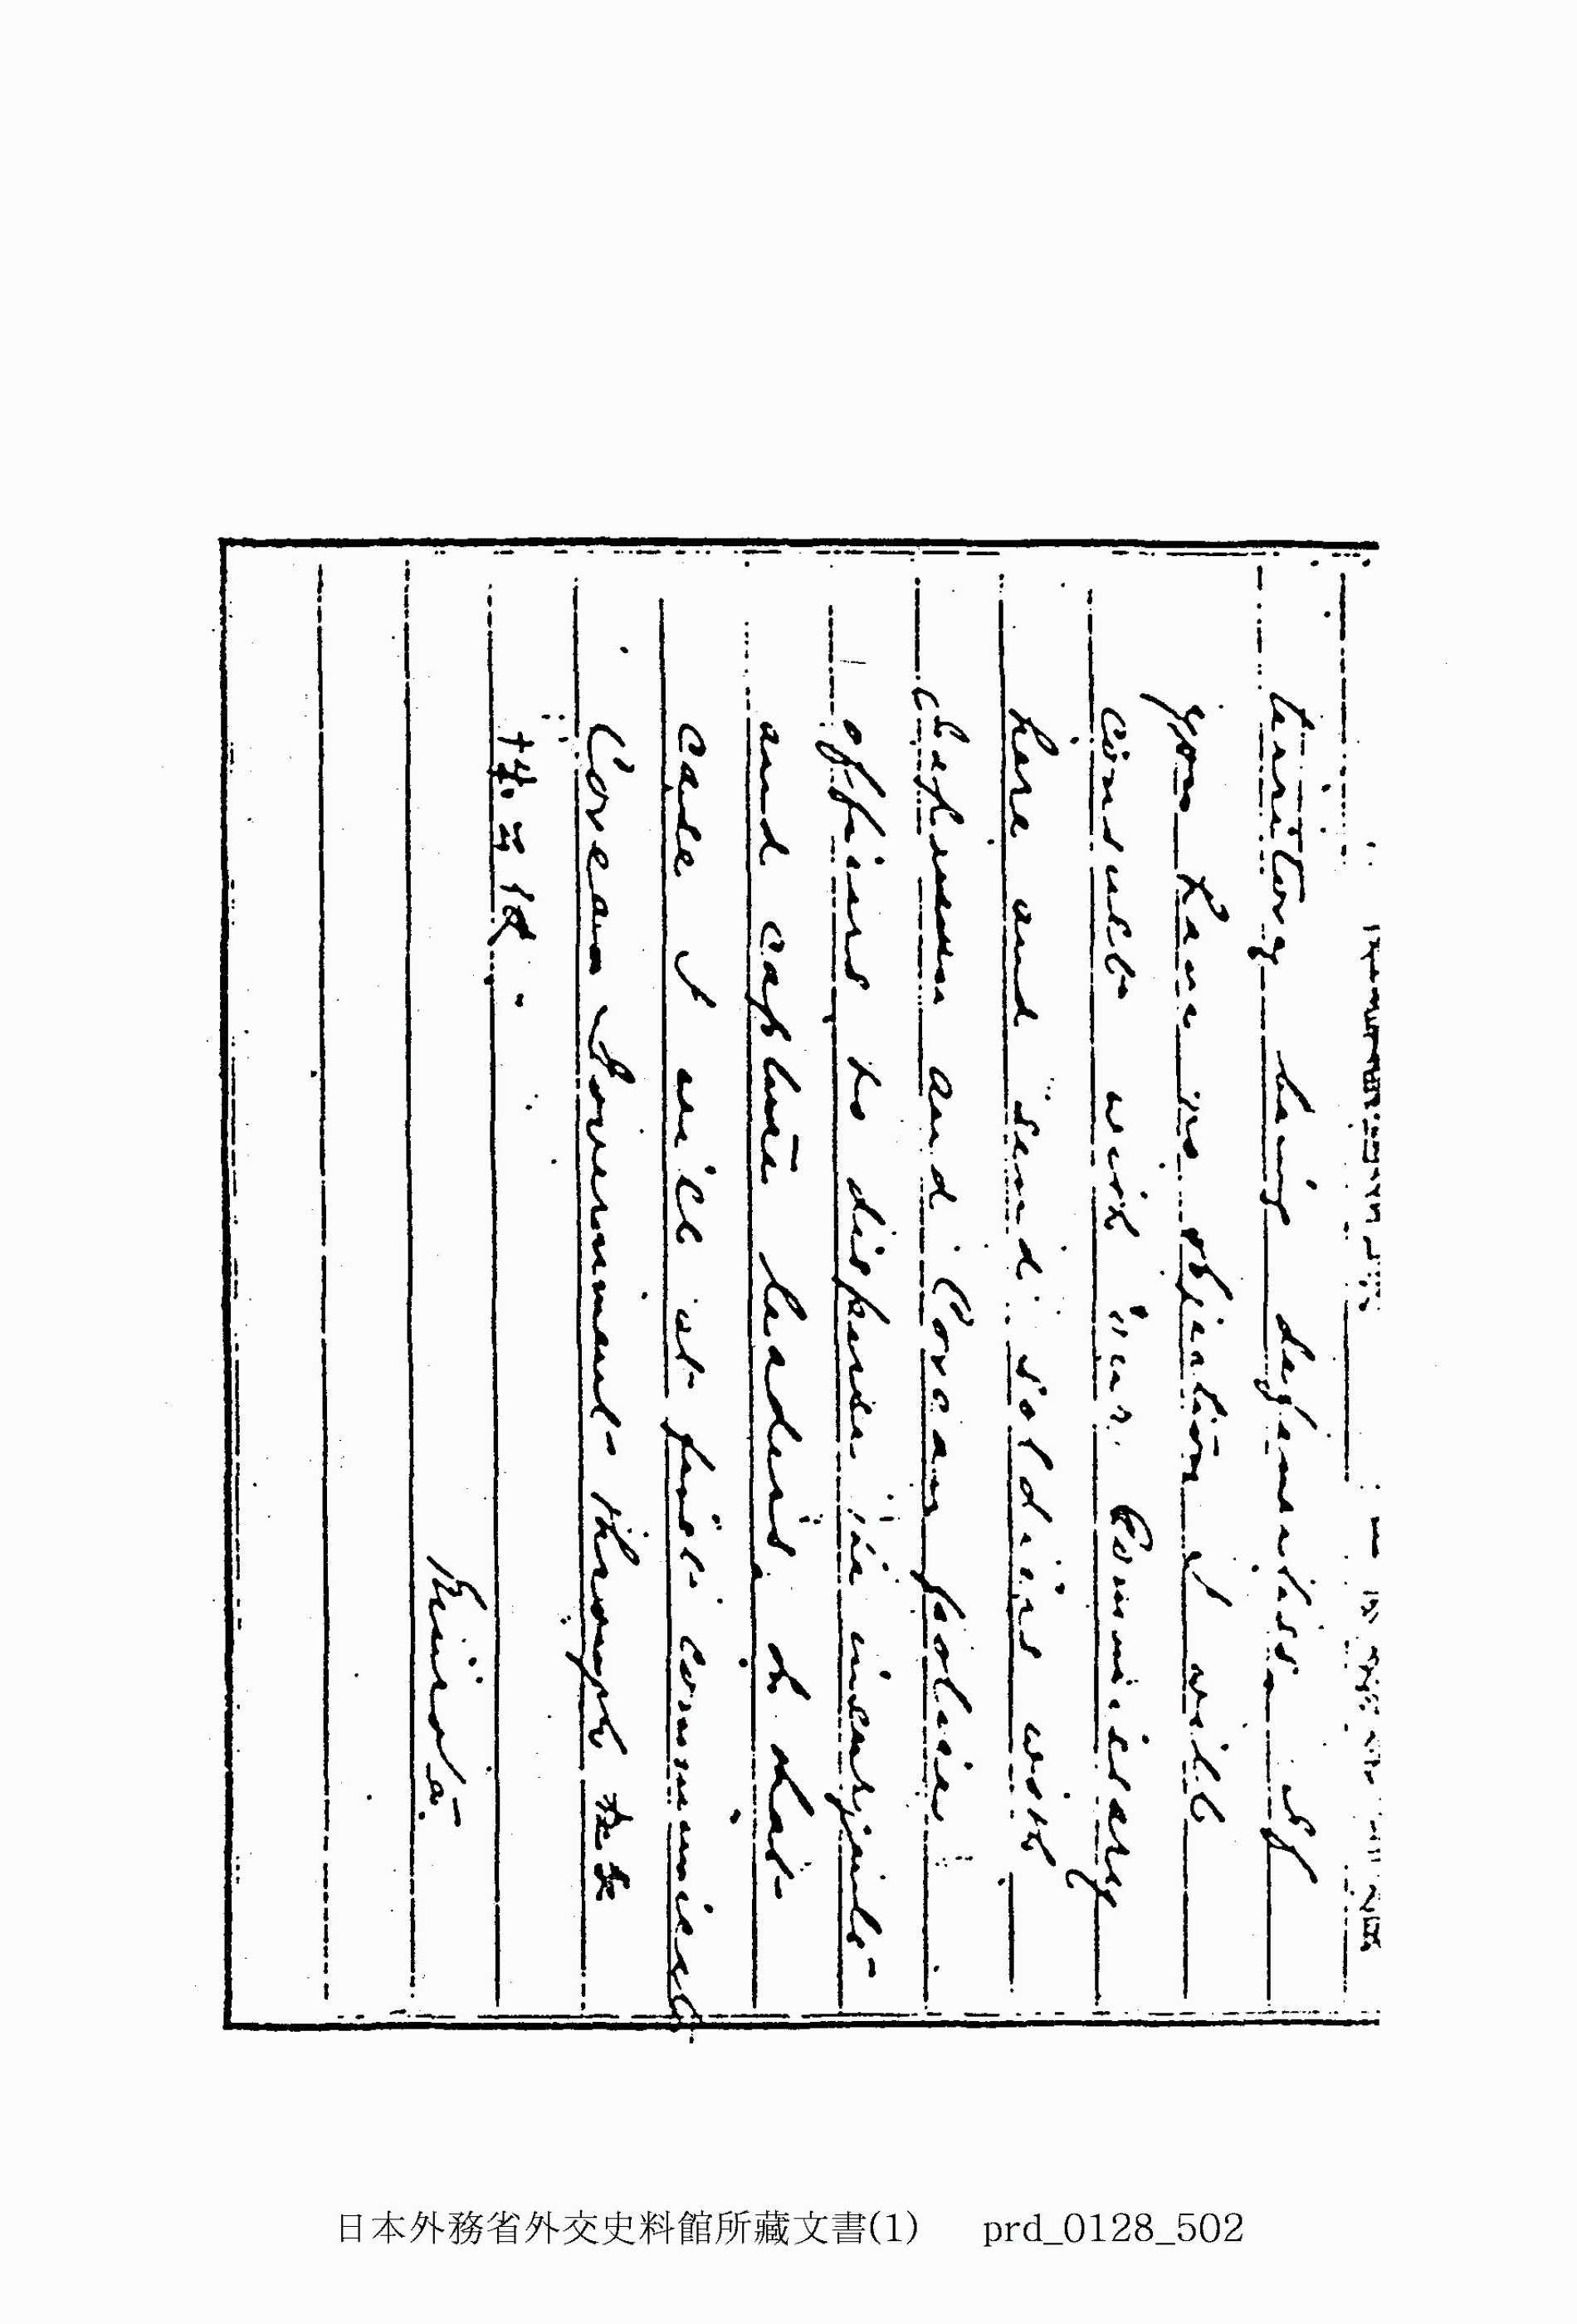 territory being defenseless. If
you have no objection I will
consult with our Commissary
here and send soldiers with
Japanese and Corean polices
officers to disperse the insurgents
and capture leaders. In that
case I will at first communicate
Corean Government through
Miura
日本外務省外交史料館所藏文書(1) prd_0128_502